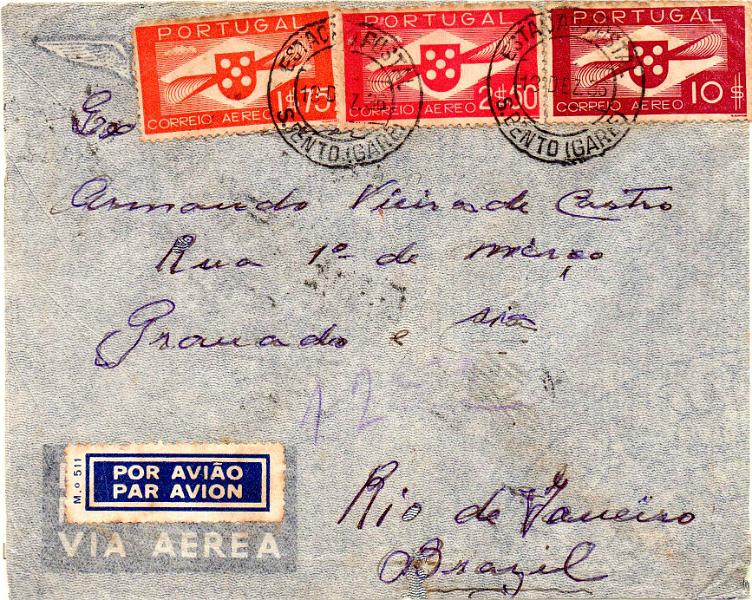 PORTUGAL
1$75
CORREIO AEREO
PORTUGAL
2$50
CORREIO AEREO
PORTUGAL
10$
CORREIO AEREO
ESTAÇÃO POSTAL
S. BENTO (GARE)
ESTAÇÃO POSTAL
12 DEZ
S. BENTO (GARE)
Armando Vieira de Castro
Rua 1º de Março
Granado e Sia
12-
M.o 511
POR AVIÃO
PAR AVION
VIA AEREA
Rio de Janeiro
Brazil